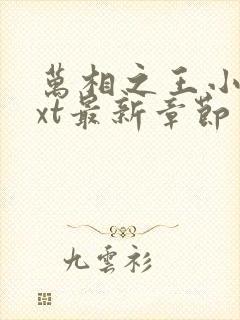 萬相之王小
xt最新章節
九雲衫